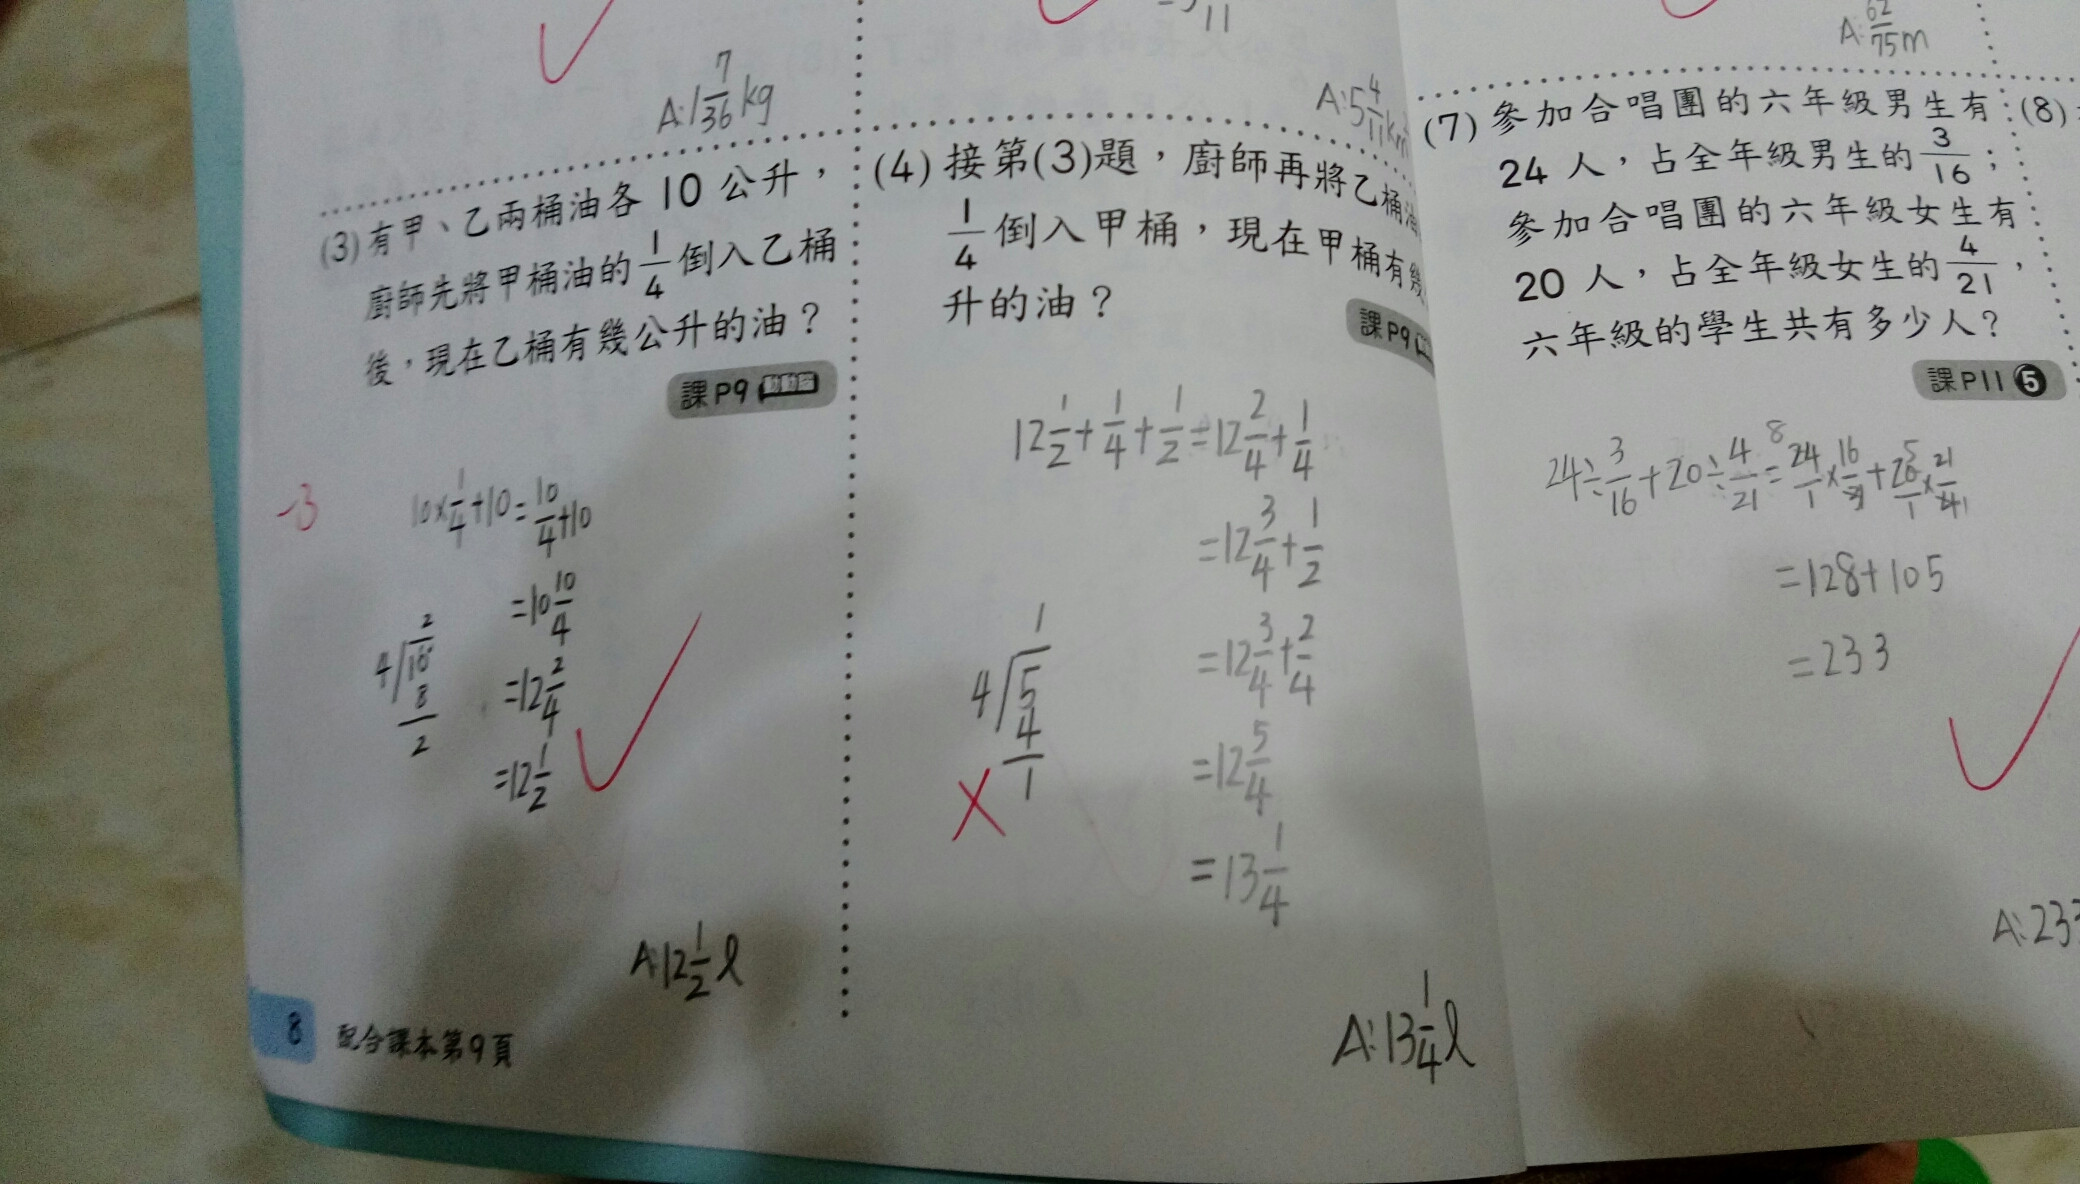 A:1 7/36 kg
11
A:5 4/11 km
A: 62/75 m
(3) 有甲、乙兩桶油各 10 公升，
廚師先將甲桶油的 1/4 倒入乙桶
後，現在乙桶有幾公升的油？
課P9 動動腦
-3
10×1/4+10=10/4+10
=10 10/4
=12 2/4
=12 1/2
2
4 10
8
2
A:12 1/2 l
(4) 接第(3)題，廚師再將乙桶油
1/4 倒入甲桶，現在甲桶有幾
升的油？
課P9
12 1/2+1/4+1/2=12 2/4+1/4
=12 3/4+1/2
=12 3/4+2/4
=12 5/4
=13 1/4
1
4 5
4
1
A:13 1/4 l
8 配合課本第9頁
(7) 參加合唱團的六年級男生有
24 人，占全年級男生的 3/16；
參加合唱團的六年級女生有
20 人，占全年級女生的 4/21，
六年級的學生共有多少人？
課P11 5
24÷3/16+20÷4/21=24/1×16/3+20/1×21/4
8
5
1
=128+105
=233
A:233
(8)